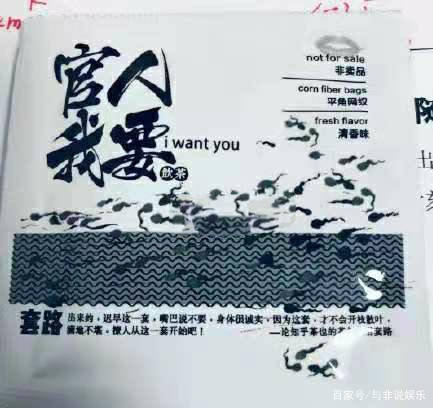 官人
我要
i want you
飲茶
not for sale
非卖品
corn fiber bags
平角网纹
fresh flavor
清香味
套路
出来约,迟早这一套,嘴巴说不要,身体很诚实,因为这套,才不会开枝散叶,
满地不堪,撩人从这一套开始吧! ——论知乎茶也的 套路
随
出
百家号/与非说娱乐